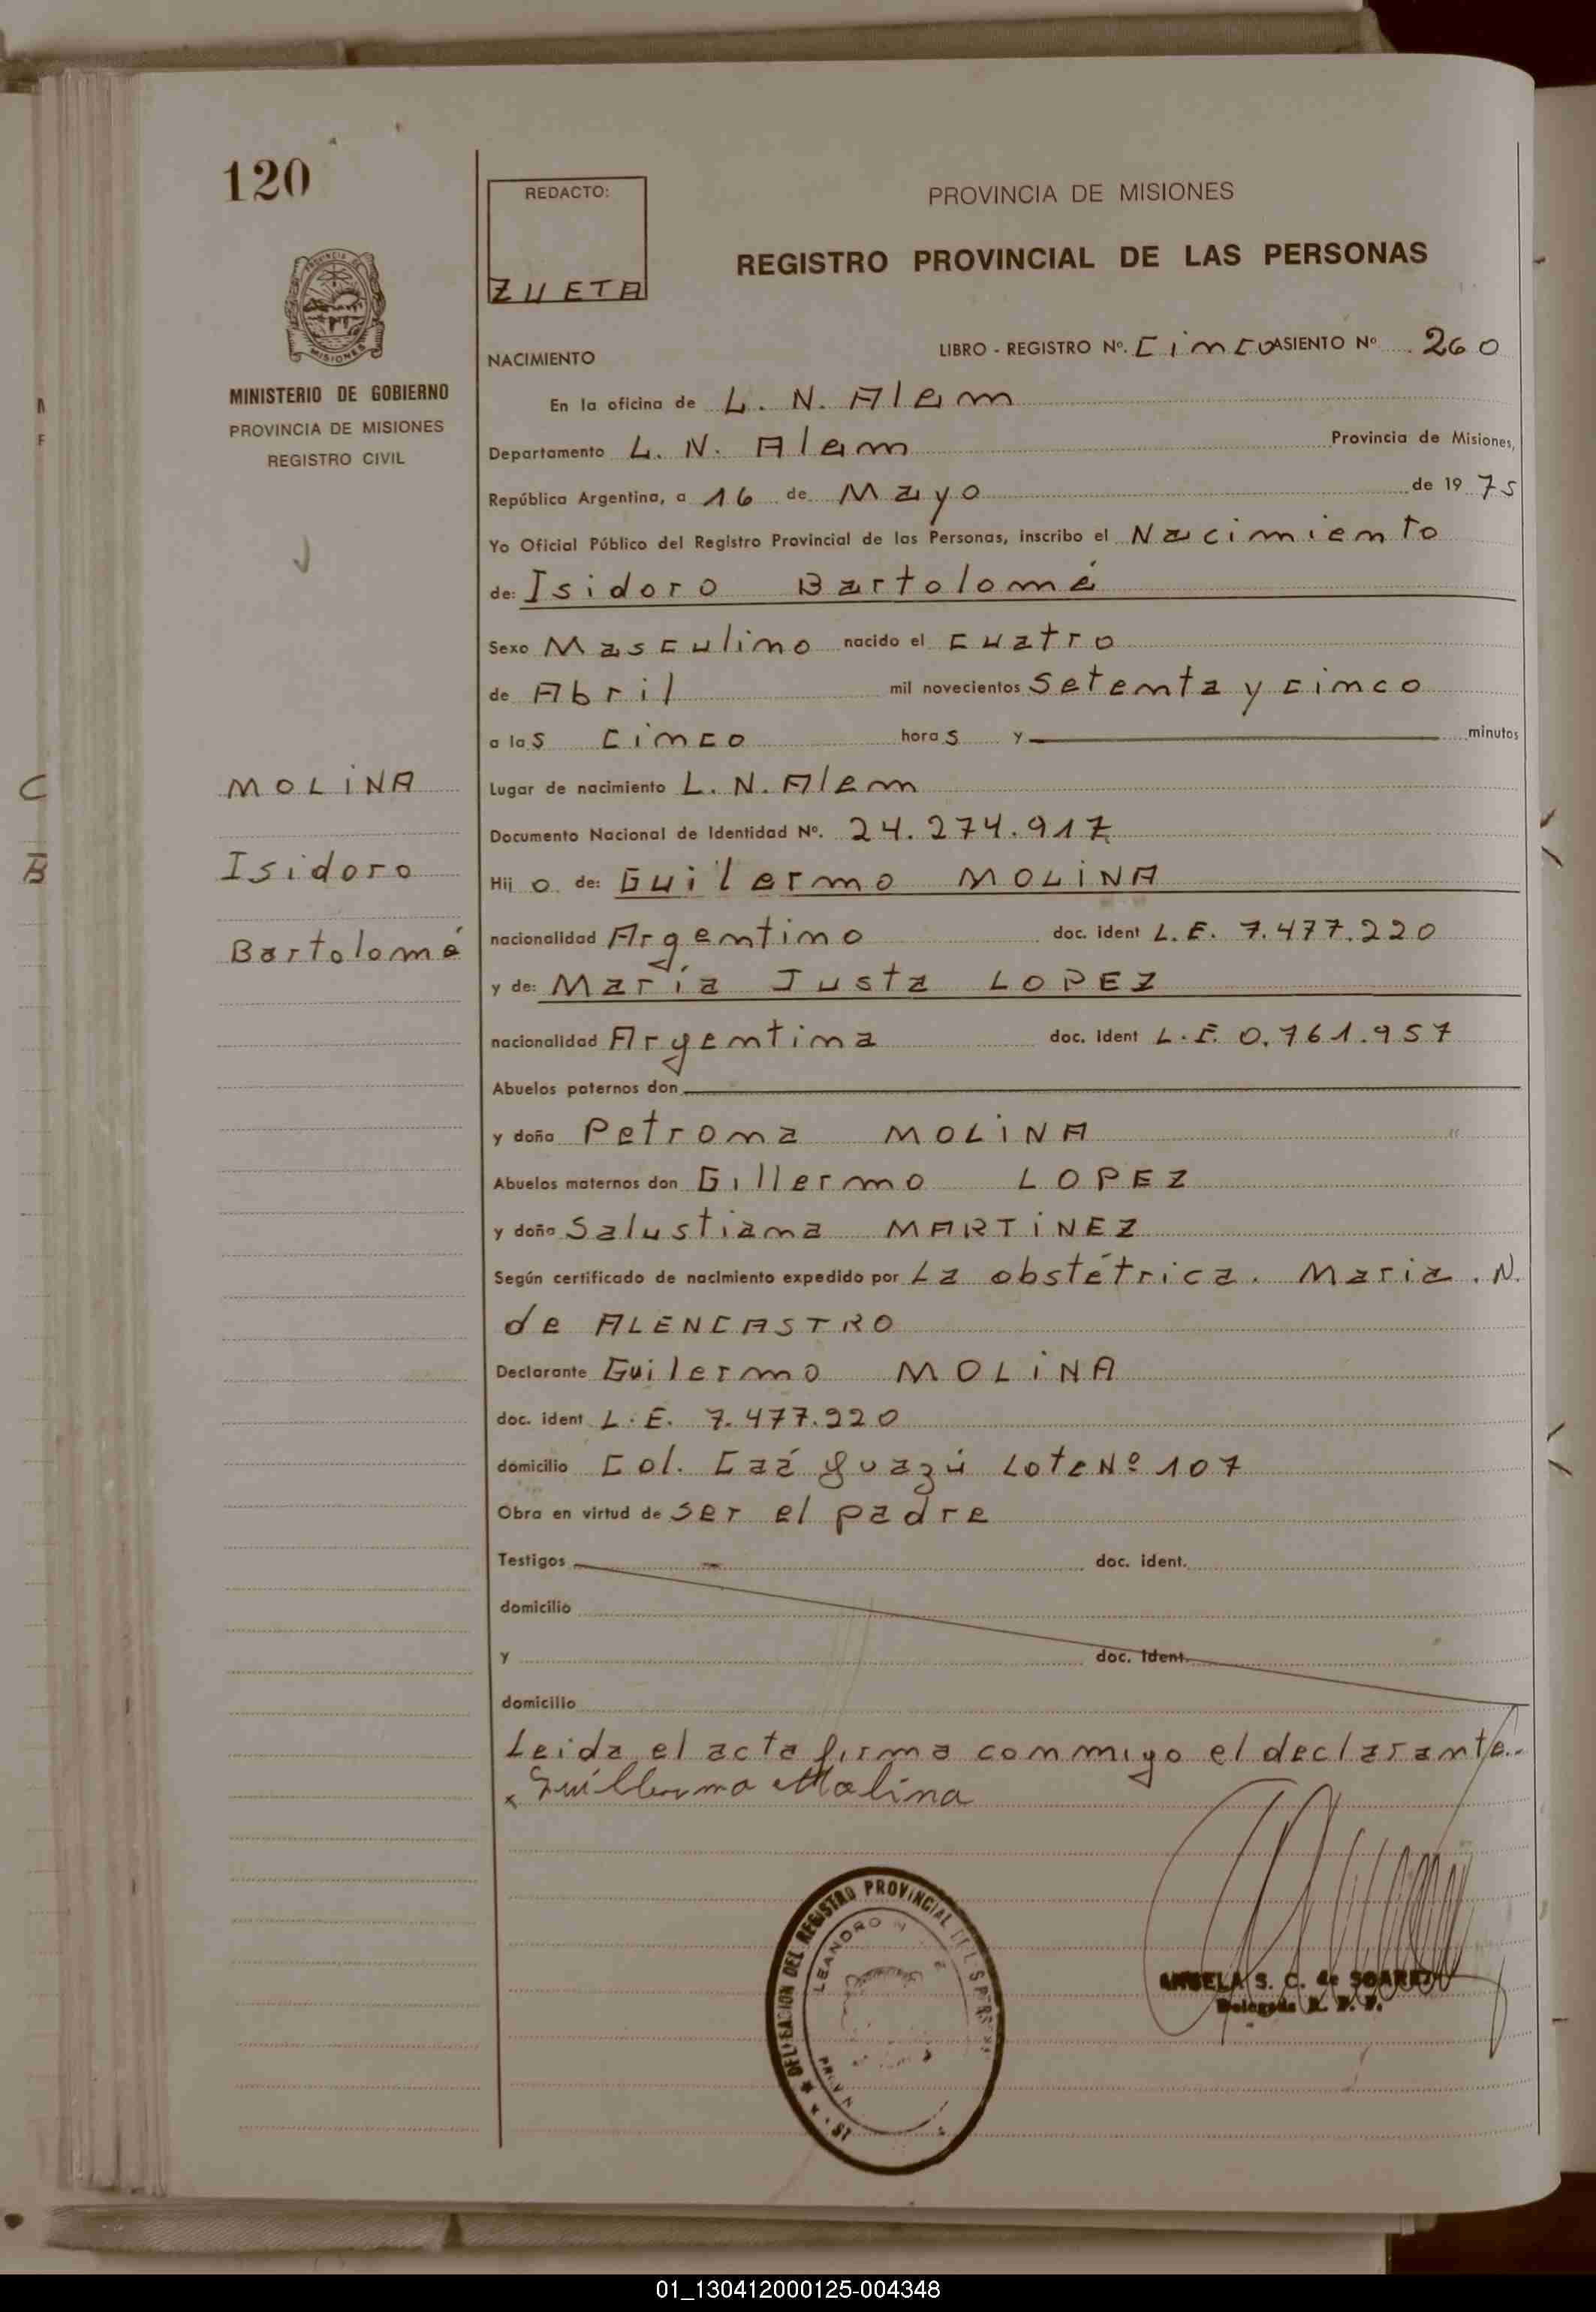 120
REDACTO:
ZUETA
PROVINCIA DE MISIONES
REGISTRO PROVINCIAL DE LAS PERSONAS
MISIONES
MINISTERIO DE GOBIERNO
PROVINCIA DE MISIONES
REGISTRO CIVIL
NACIMIENTO
LIBRO - REGISTRO Nº. Cinco ASIENTO Nº 260
En la oficina de L. N. Alem
Departamento L. N. Alem Provincia de Misiones,
República Argentina, a 16 de Mayo de 1975
Yo Oficial Público del Registro Provincial de las Personas, inscribo el Nacimiento
de: Isidoro Bartolomé
Sexo Masculino nacido el cuatro
de Abril mil novecientos Setenta y cinco
a las cinco horas y minutos
C MOLINA
Lugar de nacimiento L. N. Alem
Documento Nacional de Identidad Nº. 24.274.917
B Isidoro
Hijo de: Guilermo MOLINA
Bartolomé
nacionalidad Argentino doc. ident L.E. 7.477.220
y de: María Justa LOPEZ
nacionalidad Argentina doc. Ident L.E. 0.761.957
Abuelos paternos don
y doña Petrona MOLINA
Abuelos maternos don Gillermo LOPEZ
y doña Salustiana MARTINEZ
Según certificado de nacimiento expedido por La obstétrica. Maria. N.
de ALENCASTRO
Declarante Guilermo MOLINA
doc. ident L.E. 7.477.220
domicilio Col. Caá guazú Lote Nº 107
Obra en virtud de ser el padre
Testigos doc. ident.
domicilio
y doc. Ident.
domicilio
Leida el acta firma conmigo el declarante.-
x Guillermo Molina
DELEGACION DEL REGISTRO PROVINCIAL DE LAS PERSONAS
LEANDRO N
ANGELA S. C. de SOAREZ
Delegada R. P. P.
01_130412000125-004348